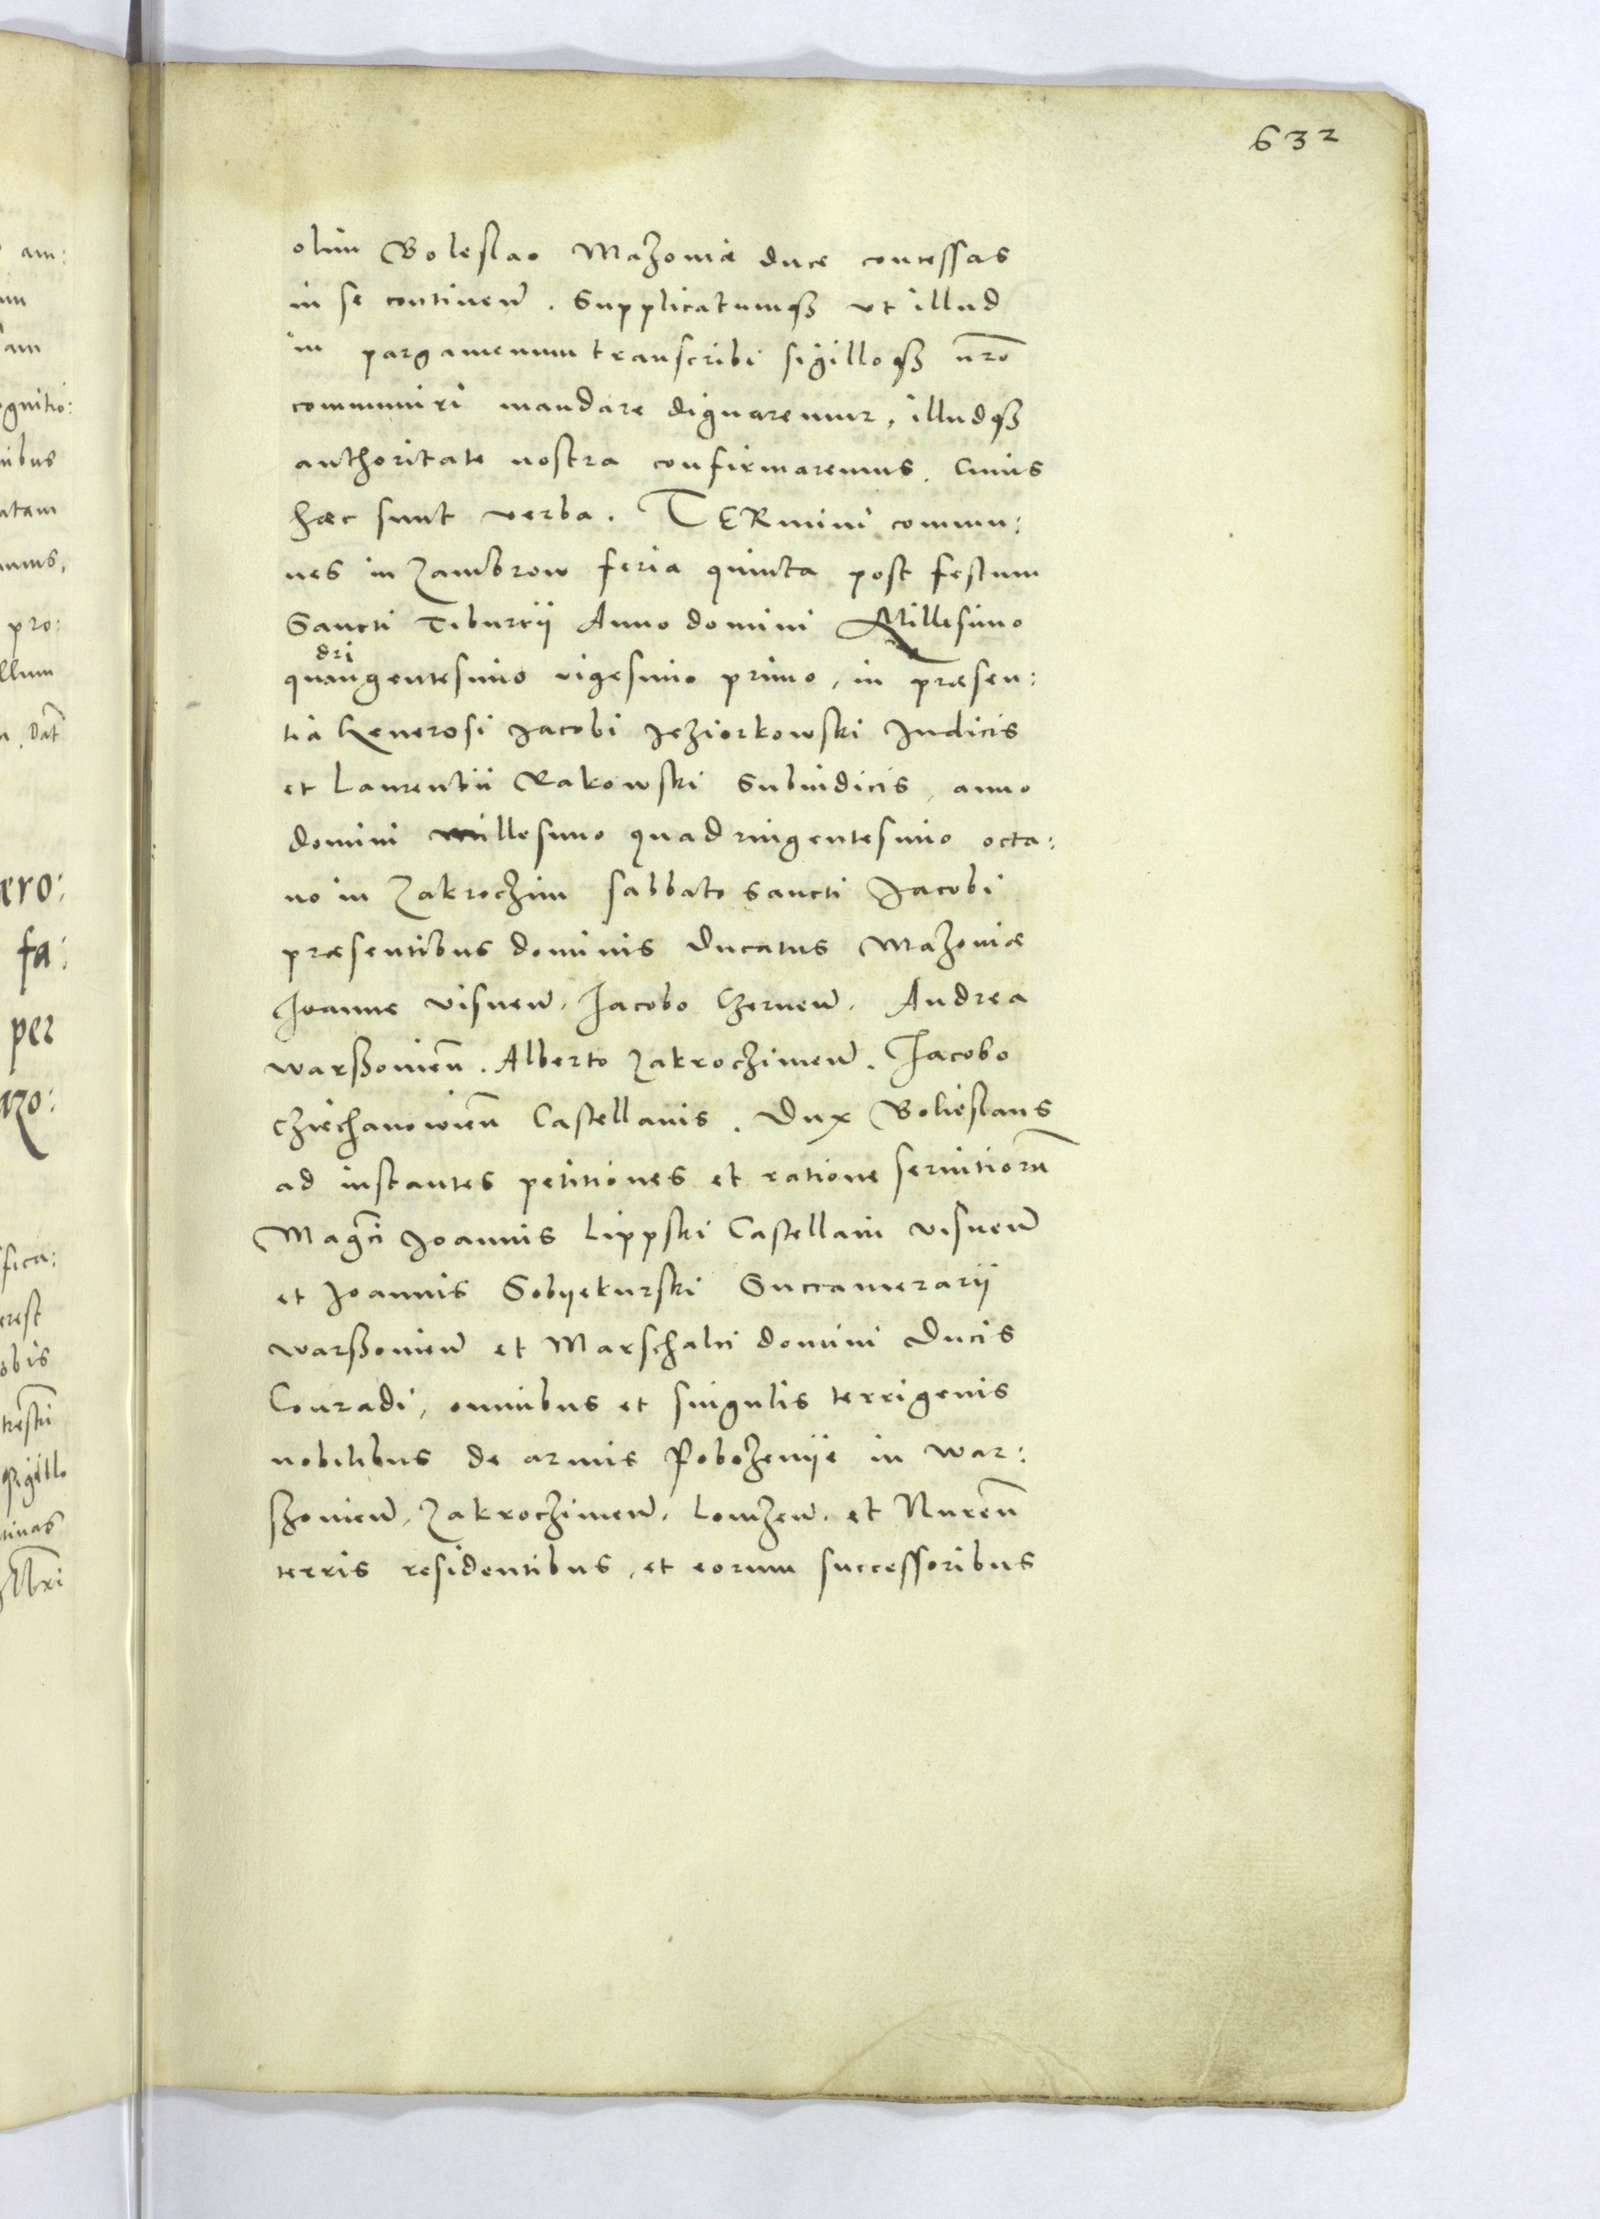 632
olim Boleslao Mazoviæ duce concessas
in se continen̄. Supplicatumqȝ vt illud
in pargamenum transcribi sigilloqȝ nr̄o
communiri mandare dignaremur, illudqȝ
authoritate nostra confirmaremus. Cuius
hæc sunt verba. TERmini commu:
nes in Zambrow feria quinta post festum
Sancti Tiburcij Anno domini Millesimo
dri
quangentesimo vigesimo primo, in præsen:
tia Generosi Jacobi Jeziorkowski Judicis
et Laurentii Rakowski Subiudicis, anno
domini millesimo quadringentesimo octa:
uo in Zakroczim sabbato sancti Jacobi
præsentibus dominis Ducatus Mazoviæ
Joanne Visnen̄. Jacobo Czernen̄. Andrea
warßouien̄. Alberto Zakroczimen̄. Jacobo
Cziechanowien̄ Castellanis. Dux Boliеslaus
ad instantes petitiones et ratione seruitiorū
Magci Joannis Lippski Castellani Visnen̄
et Joannis Sobyekurski Succamerarij
warßouien̄ et Marschalci domini Ducis
Conradi, omnibus et singulis terrigenis
nobilibus de armis Pobozenye in war:
szouien̄, Zakroczimen̄, Lomzen̄. et Nuren̄
terris residentibus, et eorum successoribus
am:
am
gnitio:
nibus
atam
pro:
llum
Dat̄
ero:
fa:
per
azo:
fica:
erest
obis
sigillo